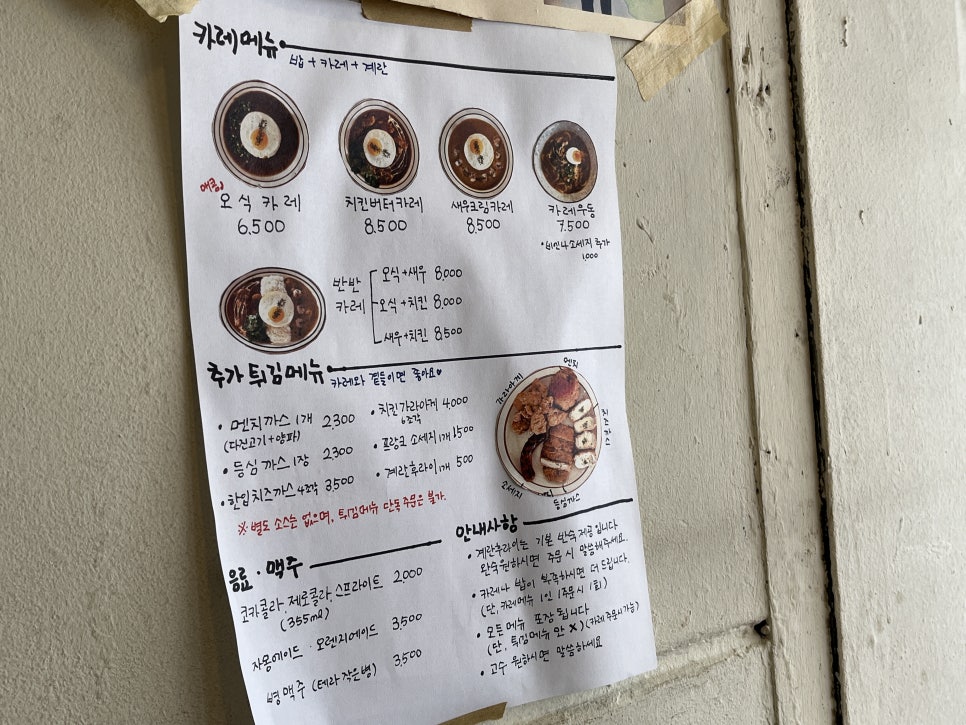 카레메뉴
밥 + 카레 + 계란
매콤
오식 카레
6,500
치킨버터카레
8,500
새우크림카레
8,500
카레우동
7,500
*비엔나소세지 추가
1,000
반반
카레
오식+새우 8,000
오식+치킨 8,000
새우+치킨 8,500
추가 튀김메뉴
카레와 곁들이면 좋아요♡
• 멘치까스 1개 2,300
(다진고기+양파)
• 등심 까스 1장 2,300
• 한입치즈까스 4조각 3,500
• 치킨가라아게 4,000
6조각
• 프랑크 소세지 1개 1,500
• 계란후라이 1개 500
※ 별도 소스는 없으며, 튀김메뉴 단독주문은 불가.
멘치
가라아게
치즈까스
소세지
등심까스
음료 · 맥주
코카콜라, 제로콜라, 스프라이트 2,000
(355ml)
자몽에이드 · 오렌지에이드 3,500
병맥주 (테라 작은병) 3,500
안내사항
• 계란후라이는 기본 반숙 제공입니다
완숙원하시면 주문 시 말씀해주세요.
• 카레나 밥이 부족하시면 더 드립니다.
(단, 카레메뉴 1인 1주문 시 1회)
• 모든메뉴 포장 됩니다
(단, 튀김메뉴 만 X) (카레 주문시 가능)
• 고수 원하시면 말씀하세요